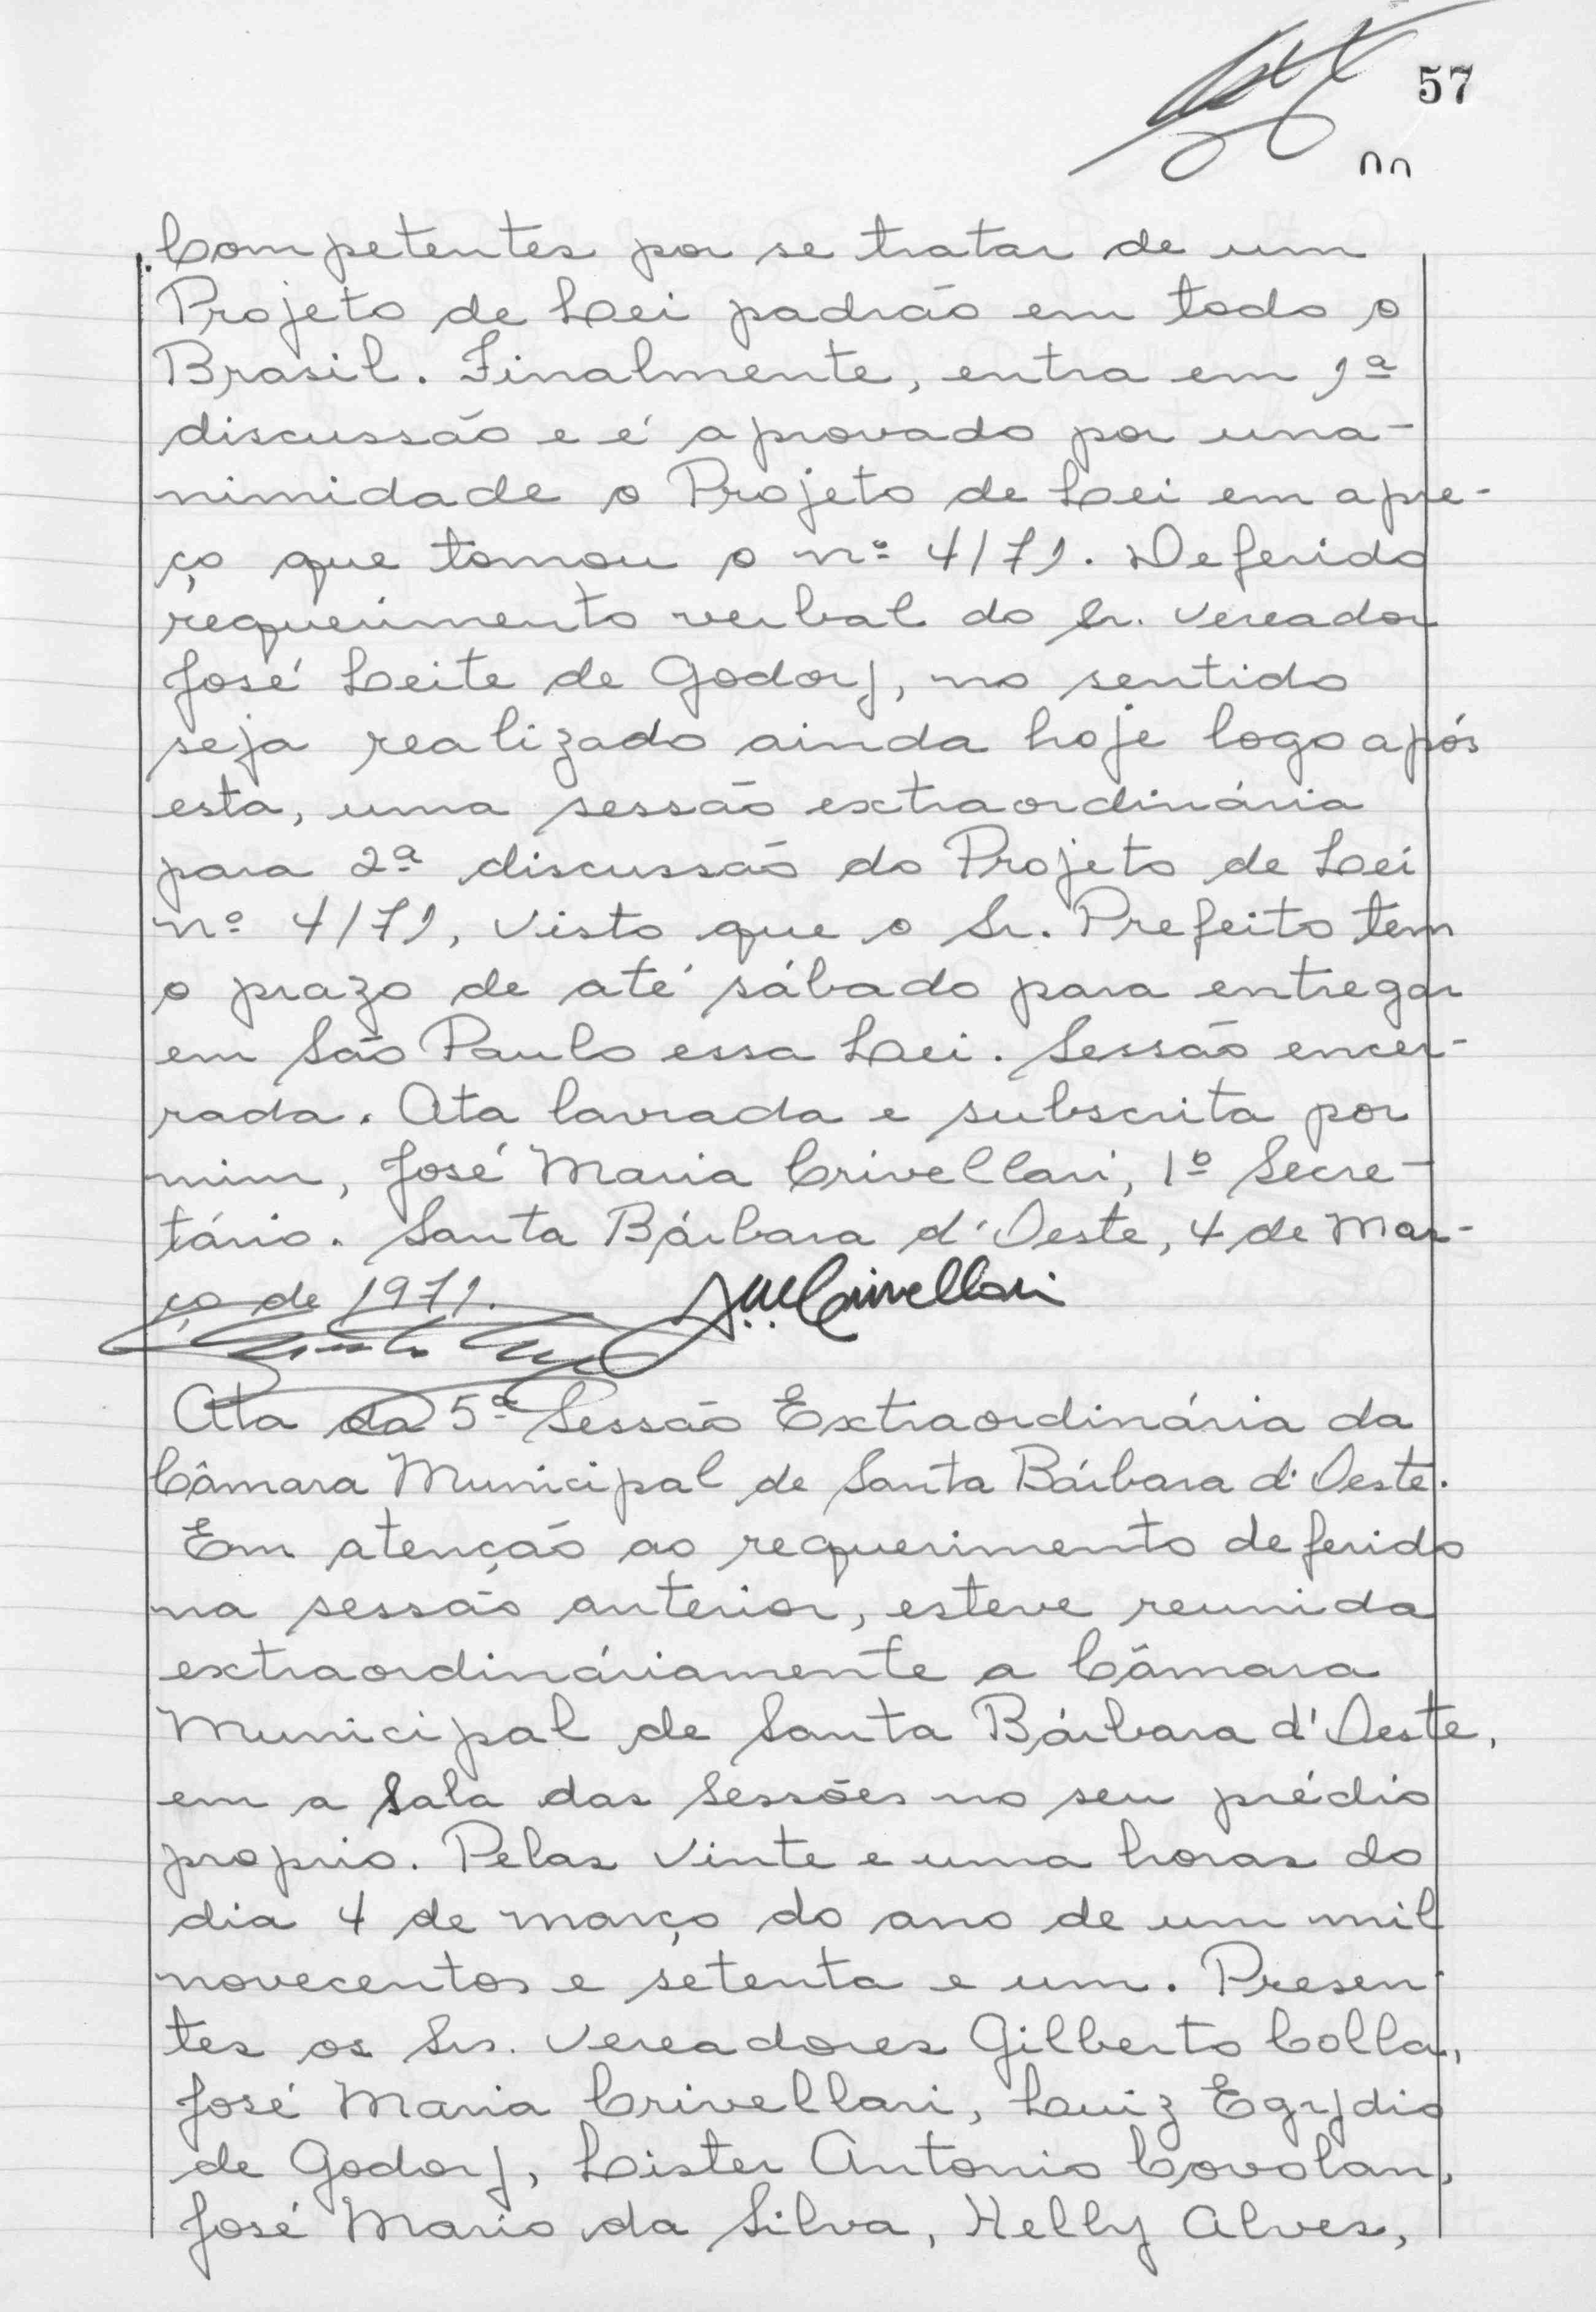 57
Competentes por se tratar de um
Projeto de Lei padrão em todo o
Brasil. Finalmente, entra em 1ª
discussão e é aprovado por una-
nimidade o Projeto de Lei em apre-
ço que tomou o nº 4/71. Deferido
requerimento verbal do Sr. Vereador
José Leite de Godoy, no sentido
seja realizado ainda hoje logo após
esta, uma sessão extraordinária
para 2ª discussão do Projeto de Lei
nº 4/71, visto que o Sr. Prefeito tem
o prazo de até sábado para entregar
em São Paulo essa Lei. Sessão encer-
rada. Ata lavrada e subscrita por
mim, José Maria Crivellari, 1º Secre-
tário. Santa Bárbara d'Oeste, 4 de Mar-
ço de 1971. J.M.Crivellari
Ata da 5ª Sessão Extraordinária da
Câmara Municipal de Santa Bárbara d'Oeste.
Em atenção ao requerimento deferido
na sessão anterior, esteve reunida
extraordináriamente a Câmara
Municipal de Santa Bárbara d'Oeste,
em a Sala das Sessões no seu prédio
proprio. Pelas vinte e uma horas do
dia 4 de março do ano de um mil
novecentos e setenta e um. Presen-
tes os Srs. Vereadores Gilberto Colla,
José Maria Crivellari, Luiz Egydio
de Godoy, Lister Antonio Covolan,
José Mario da Silva, Kelly Alves,